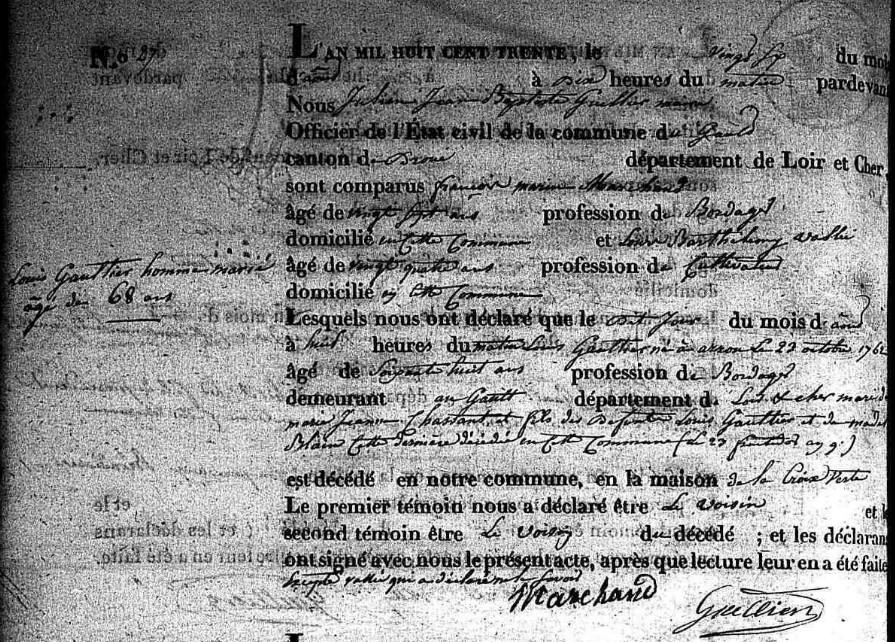 N.o 27
L'AN MIL HUIT CENT TRENTE, le vingt six du mois
d'août à dix heures du matin pardevant
Nous Julien Jean Baptiste Guillier maire
Officier de l'État civil de la commune du Gault
canton de Droué département de Loir et Cher,
sont comparus françois marin Marchand
âgé de vingt sept ans profession de Bordager
domicilié en cette Commune et Louis Barthelemy vallée
âgé de vingt quatre ans profession de Cultivateur
domicilié en cette Commune
Louis Gaulthier homme marié
âgé de 68 ans
Lesquels nous ont déclaré que le dit jour du mois d'août
à huit heures du matin Louis Gaulthier né à arrou Le 23 octobre 176
âgé de Soixante huit ans profession de Bordager
demeurant au Gault département de Loir & cher mari de
marie Jeanne Chartant et fils des Defunts Louis Gaulthier et de
cette dernière décédée en cette Commune (le 23 fructidor an 9)
est décédé en notre commune, en la maison de la Croix Verte
Le premier témoin nous a déclaré être Le voisin et le
second témoin être Le Voisin du décédé ; et les déclarans
ont signé avec nous le présent acte, après que lecture leur en a été faite,
Excepté vallée qui a déclaré ne le savoir
Marchand
Guillier